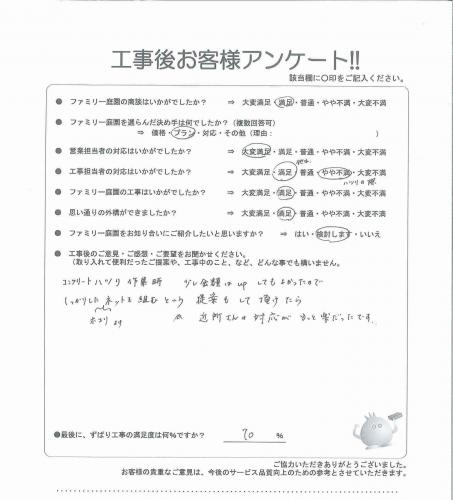 工事後お客様アンケート!!
該当欄に〇印をご記入ください。
● ファミリー庭園の商談はいかがでしたか? ⇒ 大変満足・満足・普通・やや不満・大変不満
● ファミリー庭園を選らんだ決め手は何でしたか?(複数回答可)
⇒ 価格・プラン・対応・その他(理由: )
● 営業担当者の対応はいかがでしたか? ⇒ 大変満足・満足・普通・やや不満・大変不満
● 工事担当者の対応はいかがでしたか? ⇒ 大変満足・満足・普通・やや不満・大変不満
ハツリの際
● ファミリー庭園の工事はいかがでしたか? ⇒ 大変満足・満足・普通・やや不満・大変不満
● 思い通りの外構ができましたか? ⇒ 大変満足・満足・普通・やや不満・大変不満
● ファミリー庭園をお知り合いにご紹介したいと思いますか? ⇒ はい・検討します・いいえ
● 工事後のご意見・ご感想・ご要望をお聞かせください。
(取り入れて便利だったご提案や、工事中のこと、など、どんな事でも構いません。
コンクリートハツリ作業時 少し金額はupしてもよかったので
しっかりしたネットを組むとか 提案もして頂けたら
ホコリ
近所さんの対応がもっと楽だったです。
●最後に、ずばり工事の満足度は何%ですか? 70 %
ご協力いただきありがとうございました。
お客様の貴重なご意見は、今後のサービス品質向上のための参考とさせていただきます。